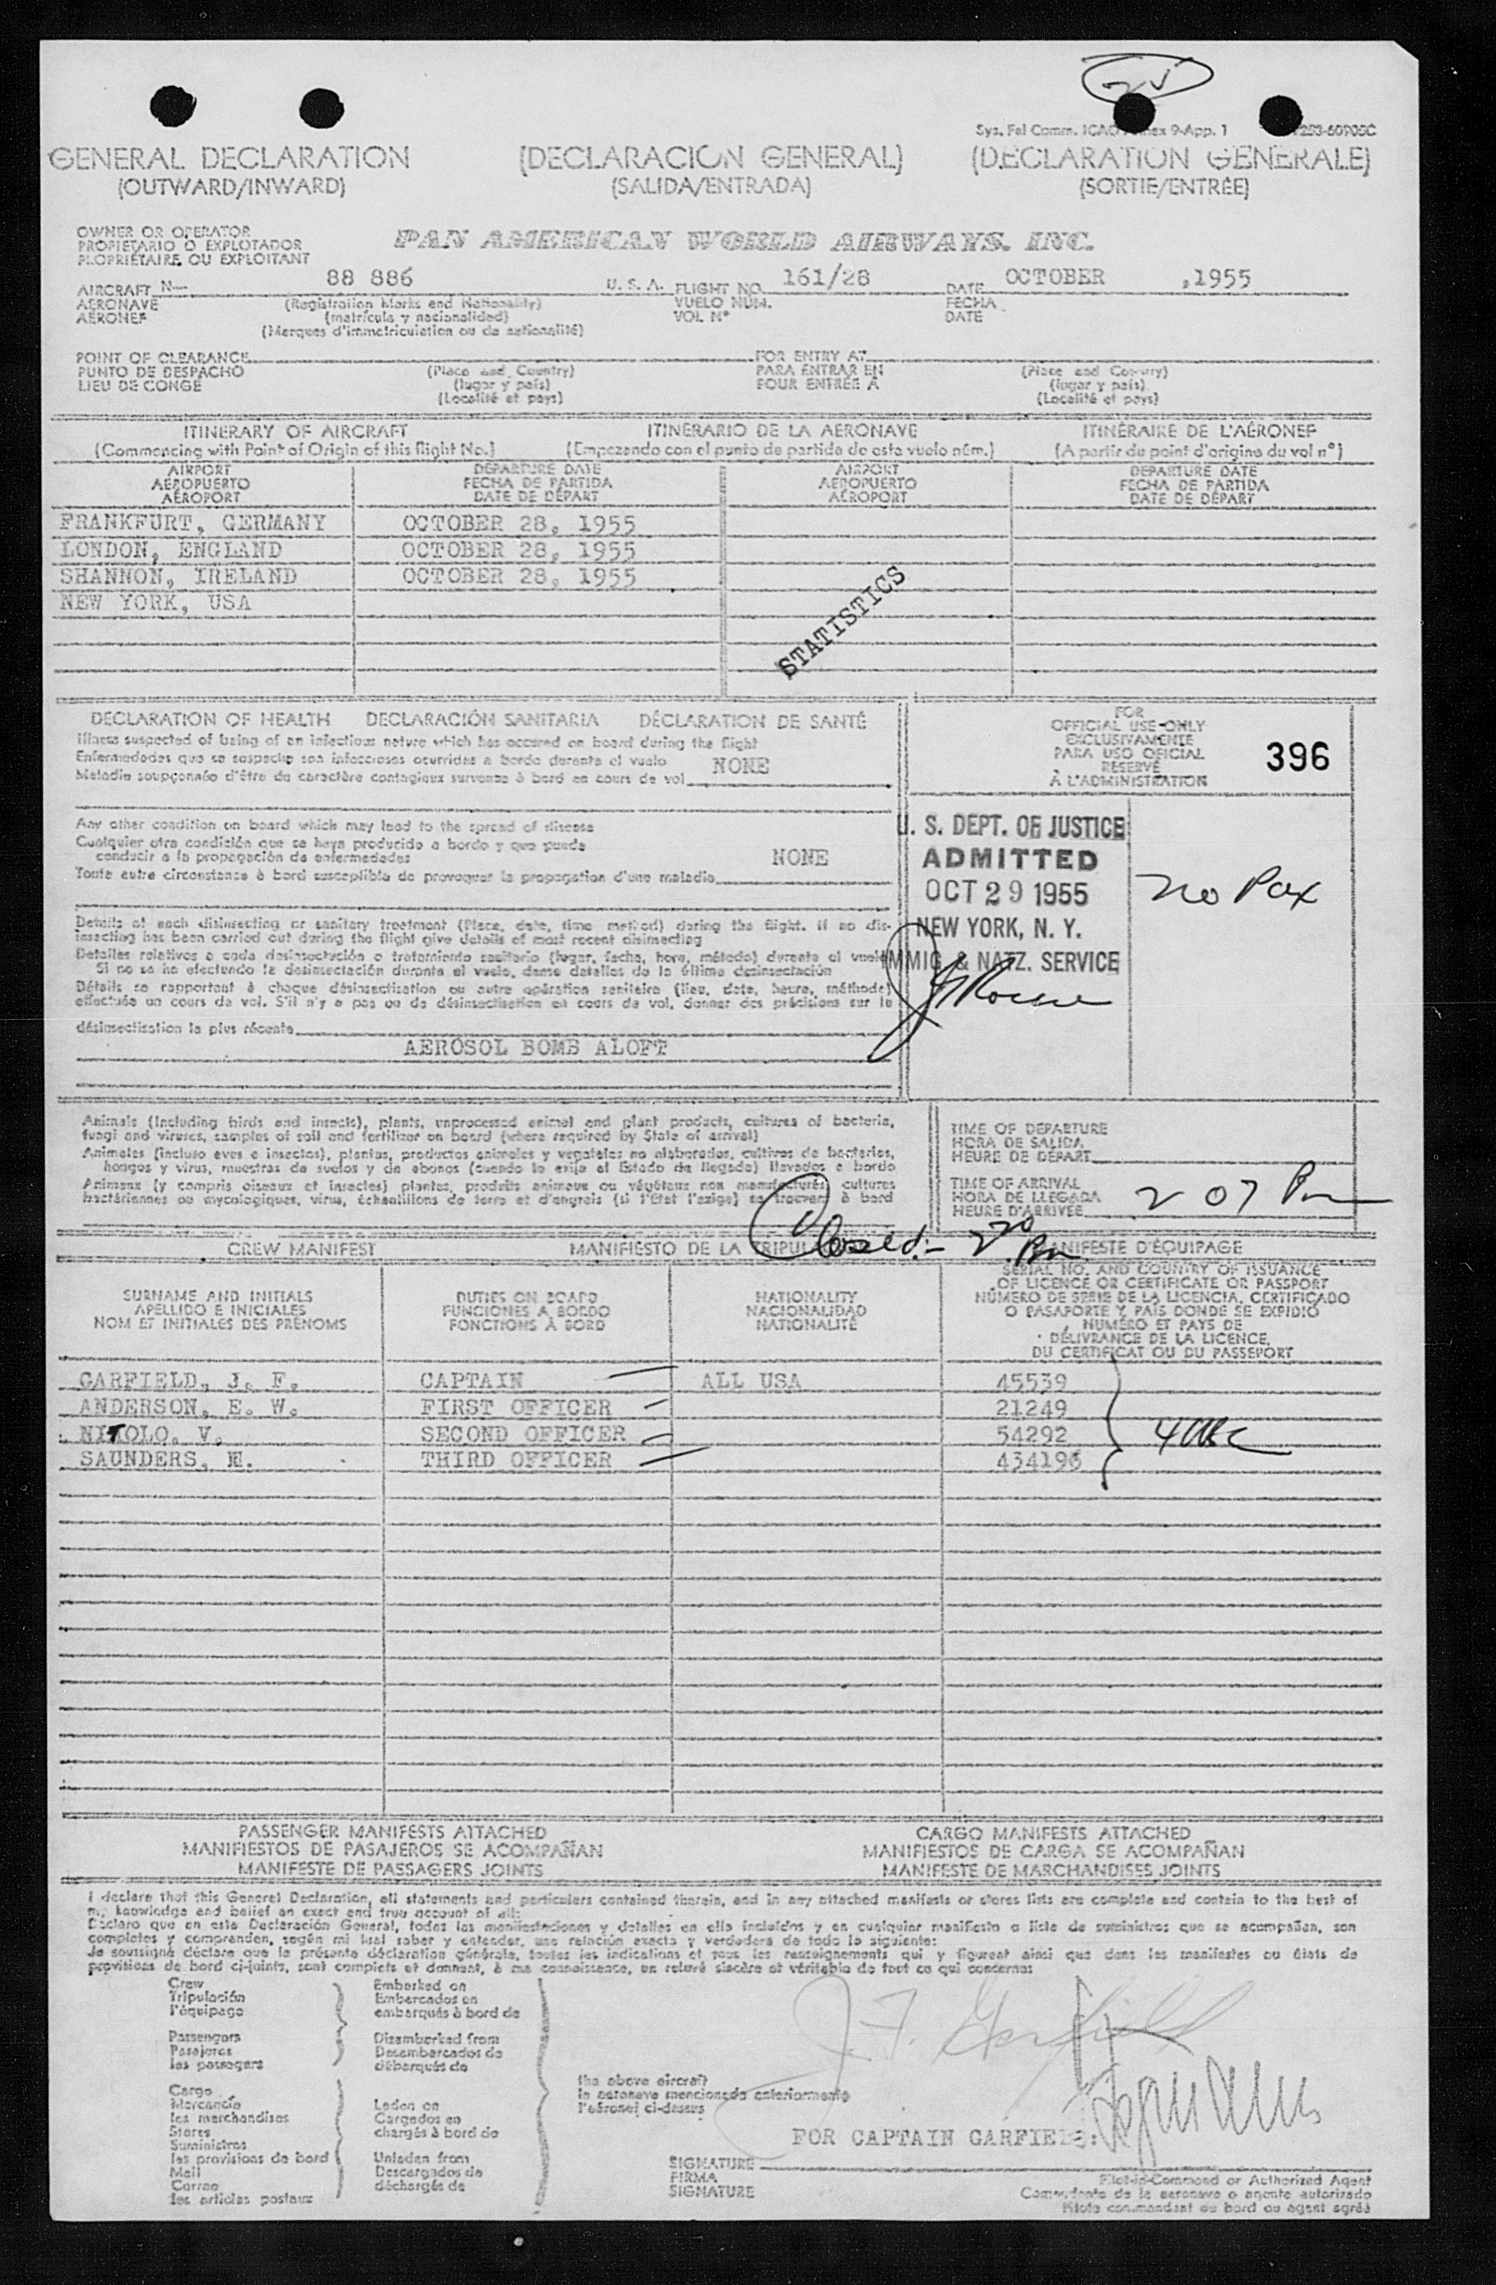 25
Sys. Fal Comm. ICAO Annex 9-App. 1
GENERAL DECLARATION (DECLARACION GENERAL) (DECLARATION GENERALE)
(OUTWARD/INWARD) (SALIDA/ENTRADA) (SORTIE/ENTRÉE)
OWNER OR OPERATOR
PROPIETARIO O EXPLOTADOR
PROPRIÉTAIRE OU EXPLOITANT
PAN AMERICAN WORLD AIRWAYS. INC.
AIRCRAFT N— 88 886 U. S. A. FLIGHT NO. 161/28 DATE OCTOBER ,1955
AERONAVE (Registration Marks and Nationality) VUELO NÚM. FECHA
AÉRONEF (matrícula y nacionalidad) VOL Nº DATE
(Marques d'immatriculation ou de nationalité)
POINT OF CLEARANCE FOR ENTRY AT
PUNTO DE DESPACHO (Place and Country) PARA ENTRAR EN (Place and Country)
LIEU DE CONGÉ (lugar y país) POUR ENTRÉE A (lugar y país)
(Localité et pays) (Localité et pays)
ITINERARY OF AIRCRAFT ITINERARIO DE LA AERONAVE ITINÉRAIRE DE L'AÉRONEF
(Commencing with Point of Origin of this flight No.) (Empezando con el punto de partida de este vuelo núm.) (A partir du point d'origine du vol nº)
AIRPORT DEPARTURE DATE AIRPORT DEPARTURE DATE
AEROPUERTO FECHA DE PARTIDA AEROPUERTO FECHA DE PARTIDA
AÉROPORT DATE DE DÉPART AÉROPORT DATE DE DÉPART
FRANKFURT, GERMANY OCTOBER 28, 1955
LONDON, ENGLAND OCTOBER 28, 1955
SHANNON, IRELAND OCTOBER 28, 1955
NEW YORK, USA
STATISTICS
DECLARATION OF HEALTH DECLARACIÓN SANITARIA DÉCLARATION DE SANTÉ
Illness suspected of being of an infectious nature which has occured on board during the flight
Enfermedades que se sospeche son infecciosas ocurridas a bordo durante el vuelo NONE
Maladie soupçonnée d'être de caractère contagieux survenue à bord en cours de vol
Any other condition on board which may lead to the spread of disease
Cualquier otra condición que se haya producido a bordo y que pueda
conducir a la propagación de enfermedades NONE
Toute autre circonstance à bord susceptible de provoquer la propagation d'une maladie
Details of each disinsecting or sanitary treatment (Place, date, time method) during the flight. If no dis-
insecting has been carried out during the flight give details of most recent disinsecting
Detalles relativos a cada desinsectación o tratamiento sanitario (lugar, fecha, hora, método) durante el vuelo
Si no se ha efectuado la desinsectación durante el vuelo, dense detalles de la última desinsectación
Détails se rapportant à chaque désinsectisation ou autre opération sanitaire (lieu, date, heure, méthode)
effectuée au cours de vol. S'il n'y a pas eu de désinsectisation en cours de vol, donner des précisions sur la
désinsectisation la plus récente
AEROSOL BOMB ALOFT
FOR
OFFICIAL USE ONLY
EXCLUSIVAMENTE
PARA USO OFICIAL
RESERVÉ
À L'ADMINISTRATION
396
U. S. DEPT. OF JUSTICE
ADMITTED
OCT 29 1955
NEW YORK, N. Y.
IMMIG. & NATZ. SERVICE
no Pax
Animals (including birds and insects), plants, unprocessed animal and plant products, cultures of bacteria,
fungi and viruses, samples of soil and fertilizer on board (where required by State of arrival)
Animales (incluso aves e insectos), plantas, productos animales y vegetales no elaborados, cultivos de bacterias,
hongos y virus, muestras de suelos y de abonos (cuando lo exija el Estado de llegada) llevados a bordo
Animaux (y compris oiseaux et insectes) plantes, produits animaux ou végétaux non manufacturés, cultures
bactériennes ou mycologiques, virus, échantillons de terre et d'engrais (si l'État l'exige) se trouvant à bord
TIME OF DEPARTURE
HORA DE SALIDA
HEURE DE DÉPART
TIME OF ARRIVAL
HORA DE LLEGADA
HEURE D'ARRIVÉE 2 07 Pm
Closed:- 2 Pm
CREW MANIFEST MANIFIESTO DE LA TRIPULACIÓN MANIFESTE D'ÉQUIPAGE
SURNAME AND INITIALS
APELLIDO E INICIALES
NOM ET INITIALES DES PRÉNOMS
DUTIES ON BOARD
FUNCIONES A BORDO
FONCTIONS À BORD
NATIONALITY
NACIONALIDAD
NATIONALITÉ
SERIAL NO. AND COUNTRY OF ISSUANCE
OF LICENCE OR CERTIFICATE OR PASSPORT
NÚMERO DE SERIE DE LA LICENCIA, CERTIFICADO
O PASAPORTE Y PAÍS DONDE SE EXPIDIÓ
NUMÉRO ET PAYS DE
DÉLIVRANCE DE LA LICENCE,
DU CERTIFICAT OU DU PASSEPORT
GARFIELD, J. F. CAPTAIN ALL USA 45539
ANDERSON, E. W. FIRST OFFICER 21249
NITOLO, V. SECOND OFFICER 54292
SAUNDERS, H. THIRD OFFICER 434196
PASSENGER MANIFESTS ATTACHED CARGO MANIFESTS ATTACHED
MANIFIESTOS DE PASAJEROS SE ACOMPAÑAN MANIFIESTOS DE CARGA SE ACOMPAÑAN
MANIFESTE DE PASSAGERS JOINTS MANIFESTE DE MARCHANDISES JOINTS
I declare that this General Declaration, all statements and particulars contained therein, and in any attached manifests or stores lists are complete and contain to the best of
my knowledge and belief an exact and true account of all:
Declaro que en esta Declaración General, todas las manifestaciones y detalles en ella incluídos y en cualquier manifiesto o lista de suministros que se acompañan, son
completos y comprenden, según mi leal saber y entender, una relación exacta y verdadera de todo lo siguiente:
Je soussigné déclare que la présente déclaration générale, toutes les indications et tous les renseignements qui y figurent ainsi que dans les manifestes ou états de
provisions de bord ci-joints, sont complets et donnent, à ma connaissance, un relevé sincère et véritable de tout ce qui concerne:
Crew Embarked on
Tripulación Embarcados en
l'équipage embarqués à bord de
Passengers Disembarked from
Pasajeros Desembarcados de
les passagers débarqués de
Cargo
Mercancía Laden on
les marchandises Cargados en
Stores chargés à bord de
Suministros
les provisions de bord Unladen from
Mail Descargados de
Correo déchargés de
les articles postaux
the above aircraft
la aeronave mencionada anteriormente
l'aéronef ci-dessus
J. F. Garfield
FOR CAPTAIN GARFIELD:
SIGNATURE
FIRMA
SIGNATURE
Pilot-in-Command or Authorized Agent
Comandante de la aeronave o agente autorizado
Pilote commandant au bord ou agent agréé